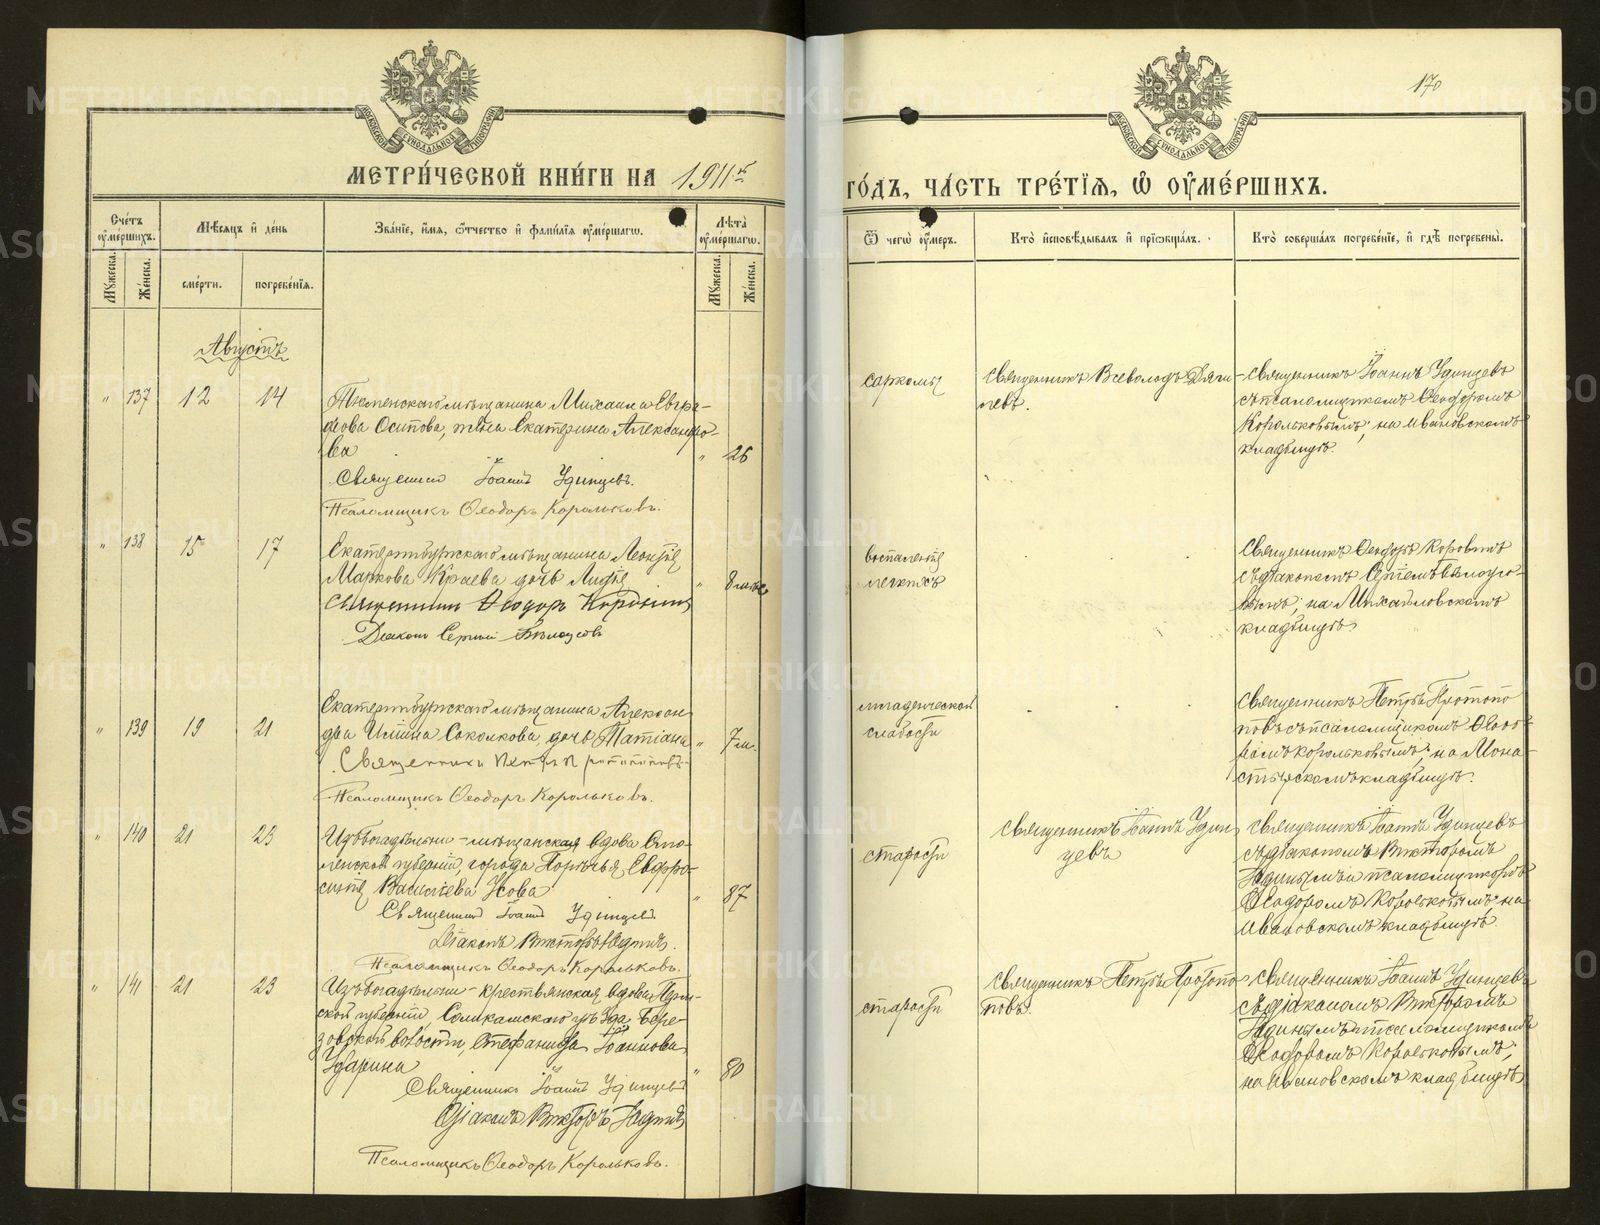 170
МЕТРИ́ЧЕСКОЙ КНИ́ГИ НА 1911й
ГО́ДЪ, ЧА́СТЬ ТРЕ́ТІѦ, Ѡ ОУМЕ́РШИХЪ.
Сче́тъ оуме́ршихъ.
Мѣ́сяцъ и де́нь
Зва́ніе, и́мя, о́тчество и фами́лія оуме́ршагѡ.
Лѣта̀ оуме́ршагѡ.
Ѿ чегѡ̀ оу́меръ.
Кто̀ исповѣ́дывалъ и прїѡбща́лъ.
Кто̀ соверша́лъ погребе́нїе, и гдѣ̀ погребены̀.
Мꙋ́жеска.
Же́нска.
сме́рти.
погребе́нїя.
Мꙋ́жеска.
Же́нска.
Августъ
" 137 12 14
Тюменскаго мѣщанина Михаила Евгра-
фова Осипова, жена Екатерина Александро-
ва
" 26
Священникъ Іоаннъ Удинцевъ.
Псаломщикъ Ѳеодоръ Корольковъ.
саркомы
Священникъ Всеволодъ
Священникъ Іоаннъ Удинцевъ
съ псаломщикомъ Ѳеодоромъ
Корольковымъ, на Ивановскомъ
кладбищѣ.
" 138 15 17
Екатеринбургскаго мѣщанина Леонтія
Маркова Краева дочь Лидія
" 8 мѣс
Священникъ Ѳеодоръ Коровинъ
Діаконъ Сергій Бѣлоусовъ
воспаленія
легкихъ
Священникъ Ѳеодоръ Коровинъ
съ діакономъ Сергіемъ Бѣлоусо-
вымъ, на Михайловскомъ
кладбищѣ
" 139 19 21
Екатеринбургскаго мѣщанина Алексан
дра Ильина Соколкова, дочь Татіана
" 7 м.
Священникъ Петръ Протопоповъ
Псаломщикъ Ѳеодоръ Корольковъ.
младенческой
слабости
Священникъ Петръ Протопо
повъ съ псаломщикомъ Ѳеодо
ромъ Корольковымъ, на Мона
стырскомъ кладбищѣ.
" 140 21 23
Изъ богадѣльни - мѣщанская вдова Смо-
ленской губерніи, города Порѣчья, Евфро-
синія Васильева Усова
" 87
Священникъ Іоаннъ Удинцевъ
Діаконъ Викторъ Юдинъ.
Псаломщикъ Ѳеодоръ Корольковъ.
старости
Священникъ Іоаннъ Удин
цевъ
Священникъ Іоаннъ Удинцевъ
съ діакономъ Викторомъ
Юдинымъ и псаломщикомъ
Ѳеодоромъ Корольковымъ, на
Ивановскомъ кладбищѣ.
" 141 21 23
Изъ богадѣльни - крестьянская вдова Перм-
ской губерніи Соликамскаго уѣзда Бере-
зовской волости, Стефанида Іоаннова
Ударина
" 80
Священникъ Іоаннъ Удинцевъ
Діаконъ Викторъ Юдинъ
Псаломщикъ Ѳеодоръ Корольковъ.
старости
Священникъ Петръ Протопо
повъ.
Священникъ Іоаннъ Удинцевъ
съ діакономъ Викторомъ
Юдинымъ и псаломщикомъ
Ѳеодоромъ Корольковымъ,
на Ивановскомъ кладбищѣ
METRIKI.GASO-URAL.RU